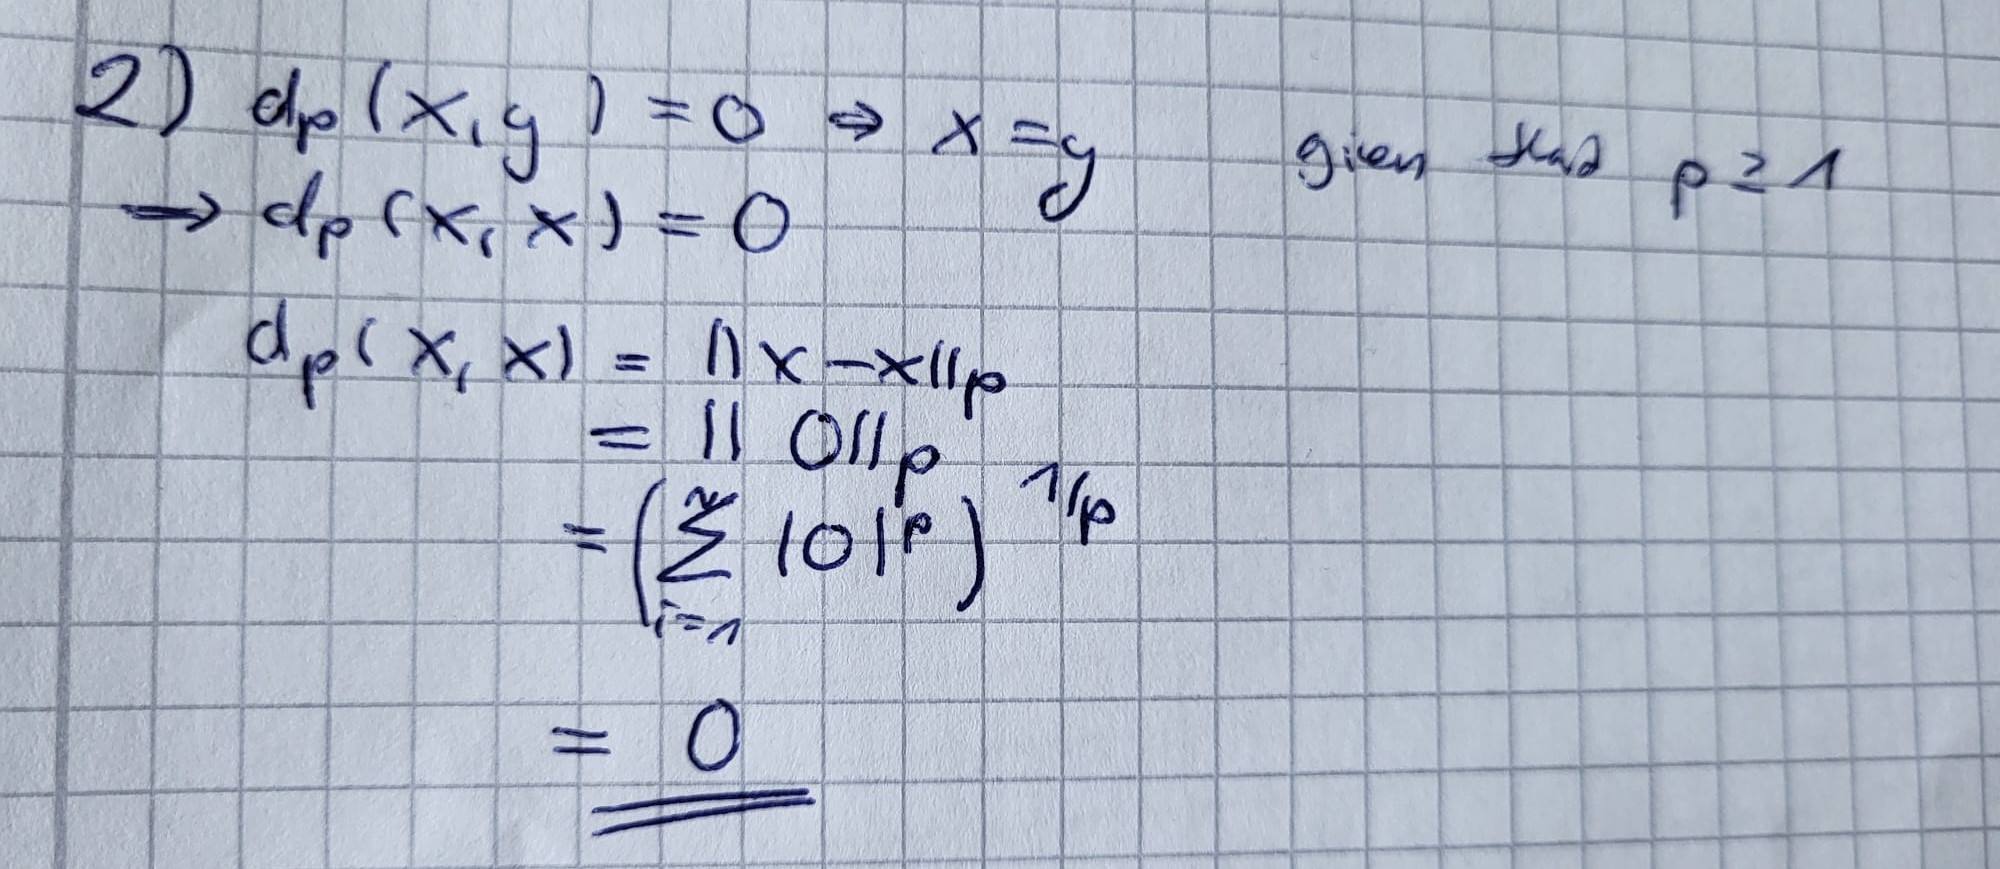 2) dp (x, y) = 0 ⇒ x = y given that p ≥ 1
→ dp (x, x) = 0
dp (x, x) = ||x - x||p
= || 0||p
= (∑ i=1 n |0|p) 1/p
= 0